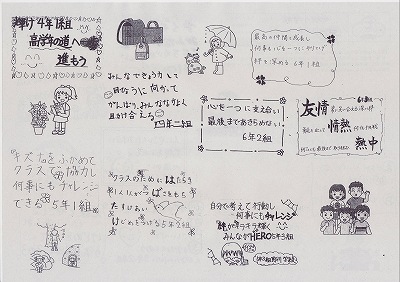 輝け4年1組
高学年の道へ
進もう
みんなできょう力して
目ひょうに向かって
がんばり、みんななかよく
助け合える
四年二組
最高の仲間と成長し
何事も心を一つにやりとげ
絆を深める 6年1組
心を一つに支え合い
最後まであきらめない
6年2組
6年3組
友情
情熱
熱中
キズナをふかめて
クラスで協力し
何事にもチャレンジ
できる 5年1組
クラスのためにはたらき
1人1人がっぱさをもち
たすけあい
けじめをつける5年2組
自分で考えて行動し
何事にもチャレンジ
絆がキラキラ輝く
みんながHERO5年3組